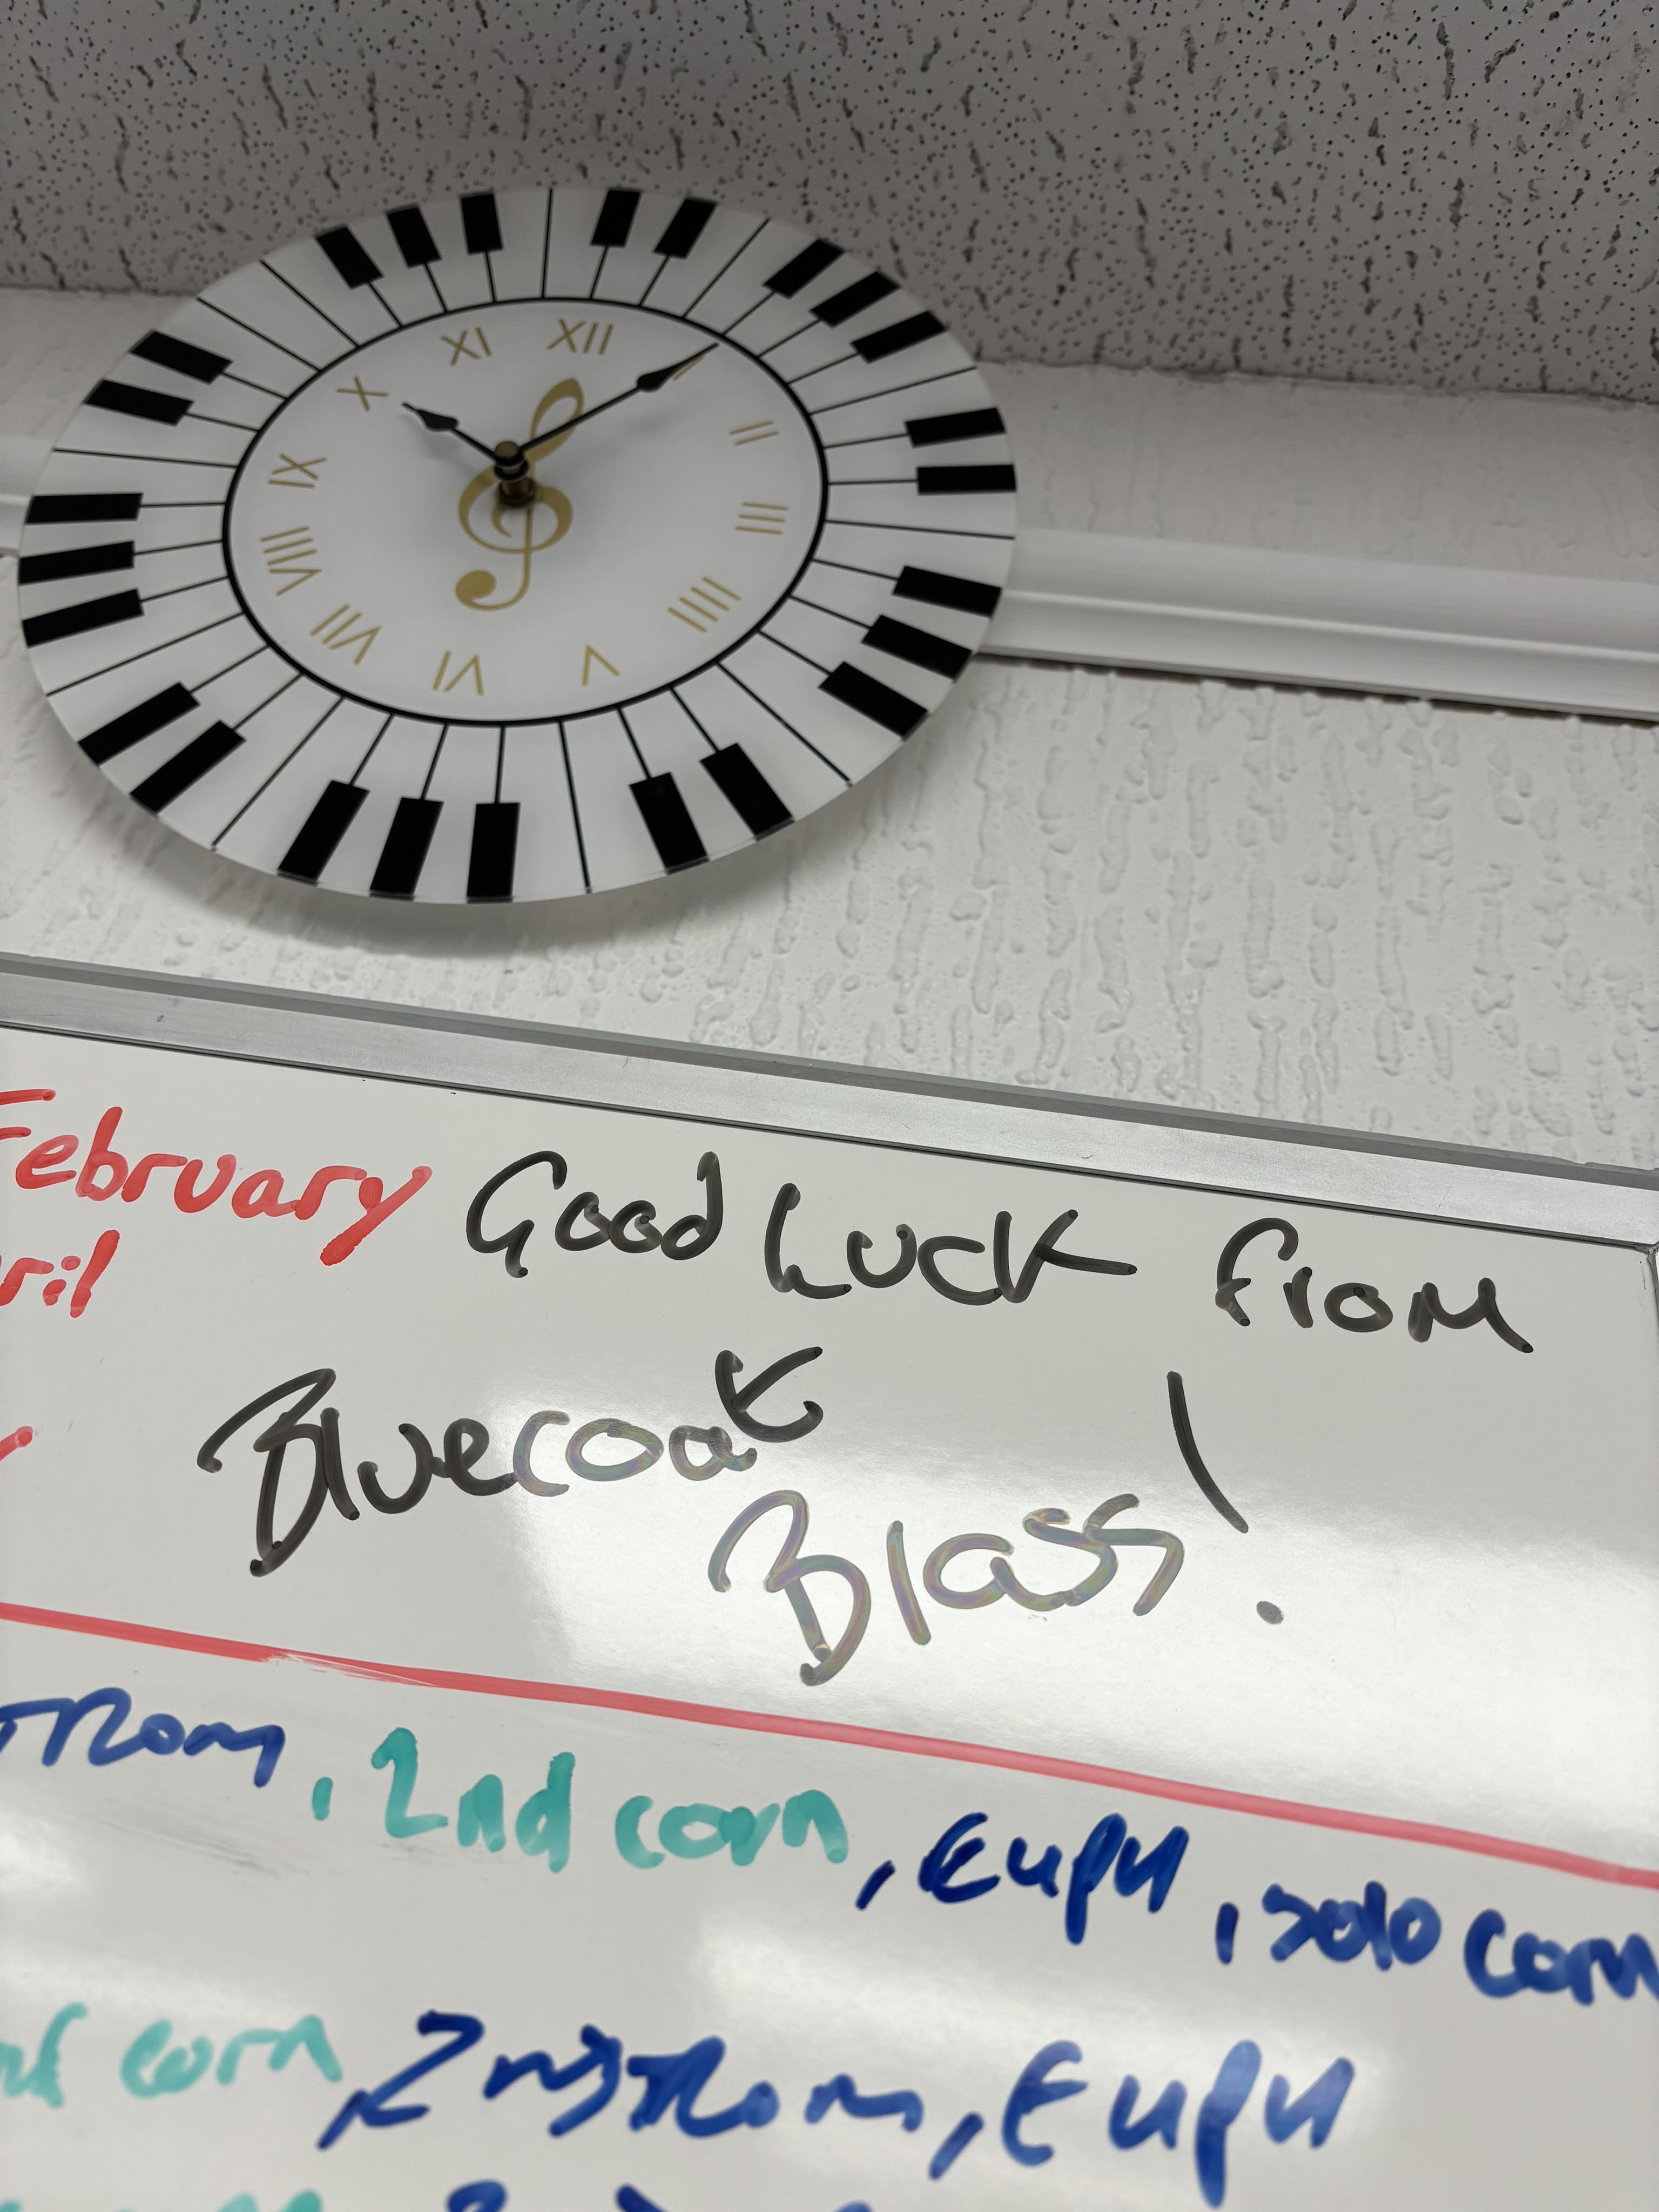 XII
I
II
III
IIII
V
VI
VII
VIII
IX
X
XI
February Good Luck from
Bluecoat
Brass!
Trom, 2nd corn, Euph, solo corn
corn, 2nd Trom, Euph